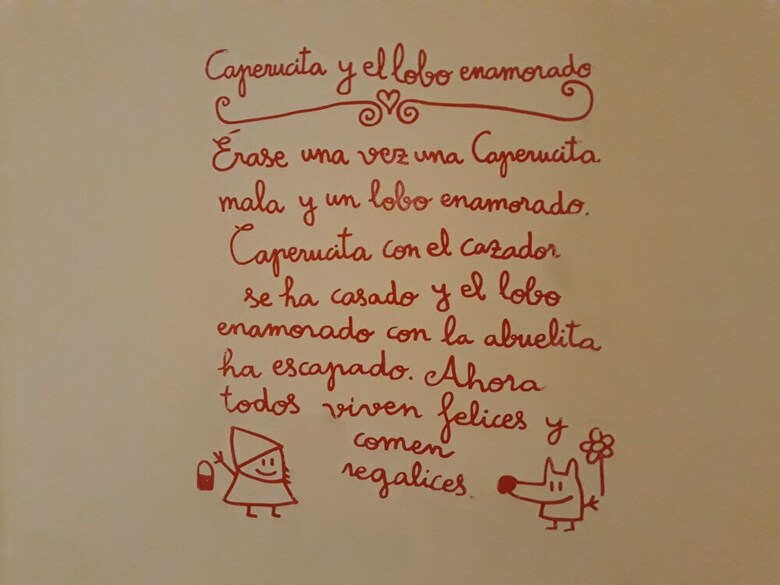 Caperucita y el lobo enamorado
Érase una vez una Caperucita
mala y un lobo enamorado.
Caperucita con el cazador
se ha casado y el lobo
enamorado con la abuelita
ha escapado. Ahora
todos viven felices y
comen
regalices.